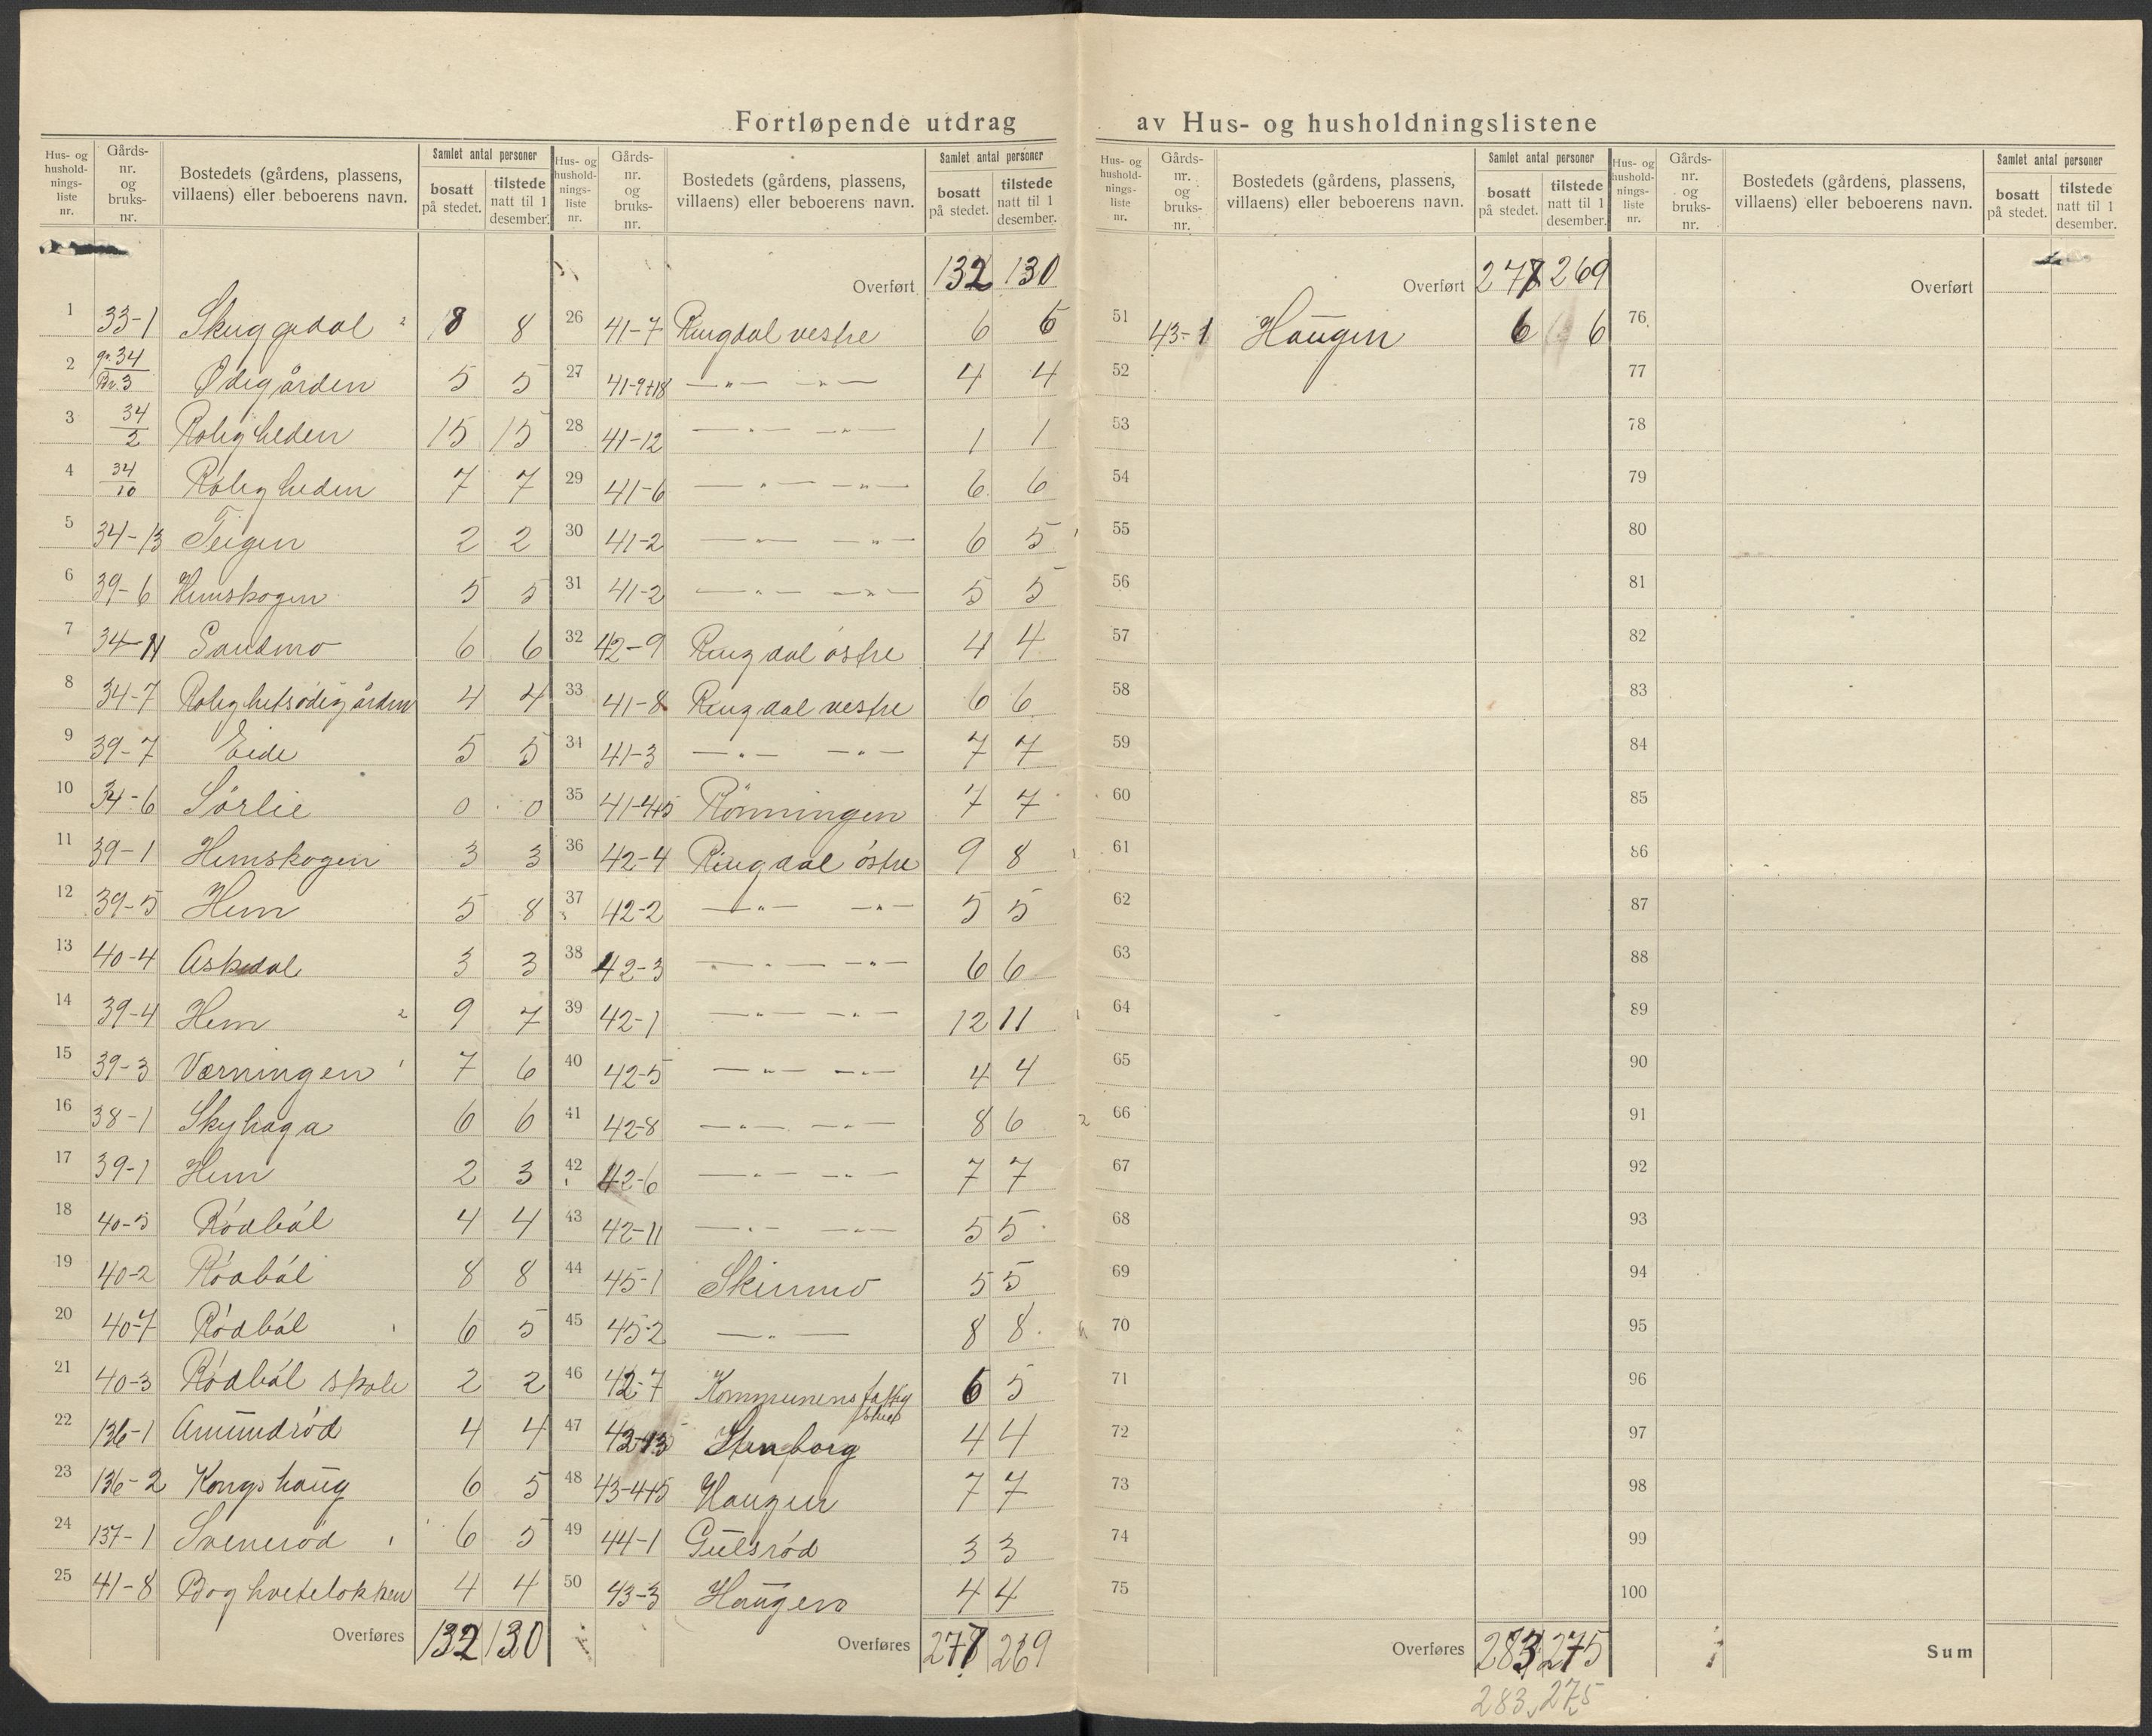 Fortløpende utdrag av Hus- og husholdningslistene
Hus- og hushold-nings-liste nr. | Gårds-nr. og bruks-nr. | Bostedets (gårdens, plassens, villaens) eller beboerens navn. | Samlet antal personer | bosatt på stedet. | tilstede natt til 1 desember.
1 33-1 Skuggedal 2 8 8
2 gr. 34 Br. 3 Ødegården 5 5
3 34/2 Roligheden 15 15
4 34/10 Roligheden 7 7
5 34-13 Teigen 2 2
6 39-6 Hemskogen 5 5
7 34-11 Sandmo 6 6
8 34-7 Rolighetsødegården 4 4
9 39-7 Eide 5 5
10 34-6 Sörlie 0 0
11 39-1 Hemskogen 3 3
12 39-5 Hem 5 8
13 40-4 Askedal 3 3
14 39-4 Hem 2 9 7
15 39-3 Værningen 1 7 6
16 38-1 Skyhaga 6 6
17 39-1 Hem 2 3
18 40-5 Ródból 4 4
19 40-2 Ródból 8 8
20 40-7 Ródból 1 6 5
21 40-3 Ródból skole 2 2
22 136-1 Amundród 4 4
23 136-2 Kongshaug 6 5
24 137-1 Sveneród 1 6 5
25 41-8 Boghvetelokken 4 4
Overføres 132 130
Hus- og hushold-nings-liste nr. | Gårds-nr. og bruks-nr. | Bostedets (gårdens, plassens, villaens) eller beboerens navn. | Samlet antal personer | bosatt på stedet. | tilstede natt til 1 desember.
Overført 132 130
26 41-7 Ringdal vestre 6 6
27 41-9+18 —"— —"— 4 4
28 41-12 —"— —"— 1 1
29 41-6 —"— —"— 6 6
30 41-2 —"— —"— 6 5 1
31 41-2 —"— —"— 5 5
32 42-9 Ringdal óstre 4 4
33 41-8 Ringdal vestre 6 6
34 41-3 —"— —"— 7 7
35 41-4+5 Rönningen 7 7
36 42-4 Ringdal óstre 9 8 1
37 42-2 —"— —"— 5 5
38 42-3 —"— —"— 6 6
39 42-1 —"— —"— 12 11 1
40 42-5 —"— —"— 4 4
41 42-8 —"— —"— 8 6 2
42 42-6 —"— —"— 7 7
43 42-11 —"— —"— 5 5
44 45-1 Skinmo 5 5
45 45-2 —"— 8 8
46 42-7 Kommunens 6 5
47 42-13 Stenborg 4 4
48 43-4+5 Haugen 7 7
49 44-1 Gulsród 3 3
50 43-3 Haugen 4 4
Overføres 277 269
Hus- og hushold-nings-liste nr. | Gårds-nr. og bruks-nr. | Bostedets (gårdens, plassens, villaens) eller beboerens navn. | Samlet antal personer | bosatt på stedet. | tilstede natt til 1 desember.
Overført 277 269
51 43-1 Haugen 6 6
52
53
54
55
56
57
58
59
60
61
62
63
64
65
66
67
68
69
70
71
72
73
74
75
Overføres 283 275
283 275
Hus- og hushold-nings-liste nr. | Gårds-nr. og bruks-nr. | Bostedets (gårdens, plassens, villaens) eller beboerens navn. | Samlet antal personer | bosatt på stedet. | tilstede natt til 1 desember.
Overført
76
77
78
79
80
81
82
83
84
85
86
87
88
89
90
91
92
93
94
95
96
97
98
99
100
Sum